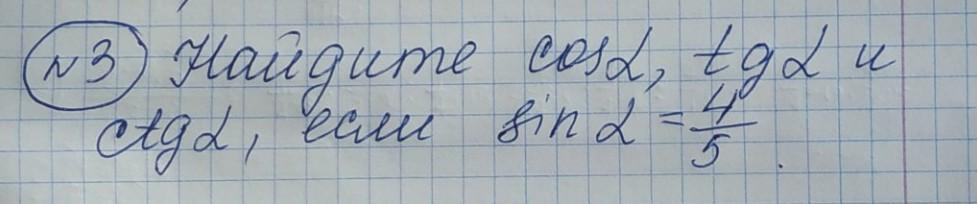 №3 Найдите cosα, tgα и
ctgα, если sin α = 4/5.